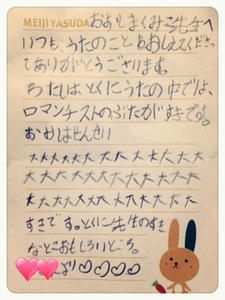 MEIJI YASUDA おおしまくみこ先生へ
いつも、うたのことをおしえてくださっ
てありがとうございます。
わたしは、とくにうたの中では、
ロマンチストのぶたがすきです。
大大大大大大大大大大大大
大大大大大大大大大大大大
大大大大大大大大大大大
すきです。とくに先生のすき
なところおもしろいところ。